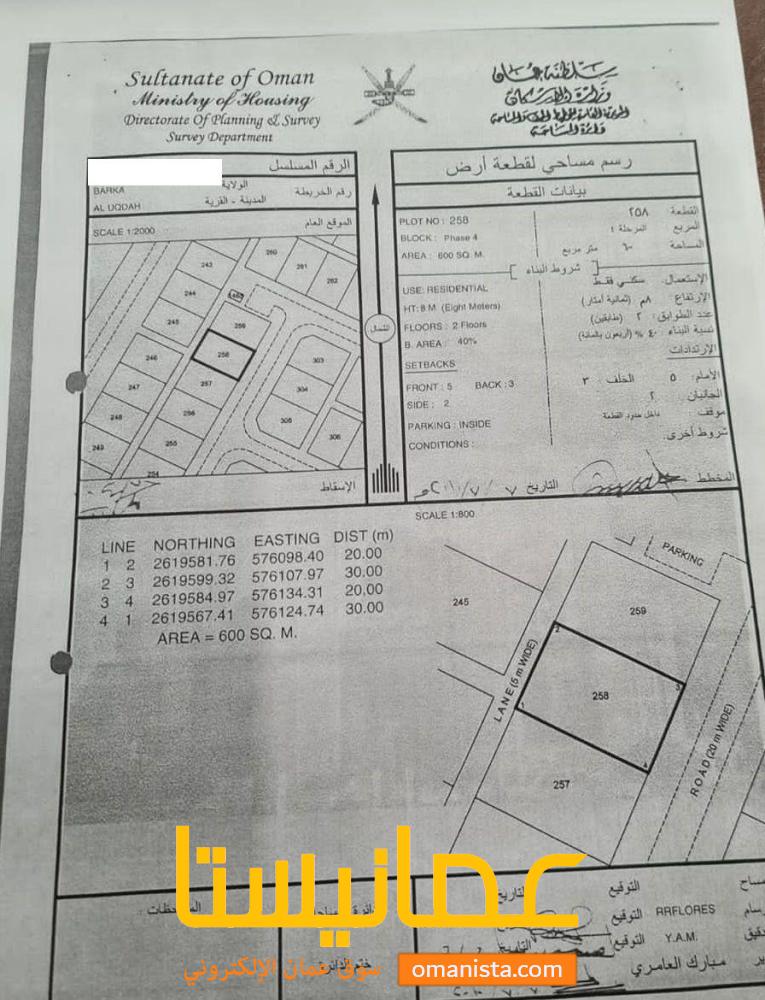 Sultanate of Oman
Ministry of Housing
Directorate Of Planning & Survey
Survey Department
سلطنة عمان
وزارة الإسكان
دائرة المساحة
رسم مساحي لقطعة أرض
بيانات القطعة
الرقم المسلسل
BARKA الولاية رقم الخريطة
AL UQDAH المدينة - القرية
SCALE 1:2000 الموقع العام
243
244
245
246
247
248
249
254
255
256
257
258
259
260
261
262
303
304
305
306
الشمال
الإسقاط
PLOT NO : 258 القطعة ٢٥٨
BLOCK : Phase 4 المربع المرحلة ٤
AREA : 600 SQ. M. المساحة ٦٠٠ متر مربع
شروط البناء
USE: RESIDENTIAL الإستعمال: سكني فقط
HT: 8 M (Eight Meters) الإرتفاع: ٨م (ثمانية أمتار)
FLOORS : 2 Floors عدد الطوابق: ٢ (طابقين)
B. AREA : 40% نسبة البناء: ٤٠ % (أربعون بالمائة)
SETBACKS الإرتدادات
FRONT : 5 BACK : 3 الأمام: ٥ الخلف: ٣
SIDE : 2 الجانبان: ٢
PARKING : INSIDE موقف: داخل حدود القطعة
CONDITIONS : شروط أخرى:
المخطط التاريخ ٧ / ٧ / ٢٠١٠م
SCALE 1:800
LINE NORTHING EASTING DIST (m)
1 2 2619581.76 576098.40 20.00
2 3 2619599.32 576107.97 30.00
3 4 2619584.97 576134.31 20.00
4 1 2619567.41 576124.74 30.00
AREA = 600 SQ. M.
PARKING
245
259
258
257
1
2
3
4
LANE (5 m WIDE)
ROAD (20 m WIDE)
عمانيستا
سوق عمان الإلكتروني
omanista.com
التوقيع التاريخ
RRFLORES التوقيع
Y.A.M. التوقيع التاريخ
مبارك العامري
ختم الدائرة